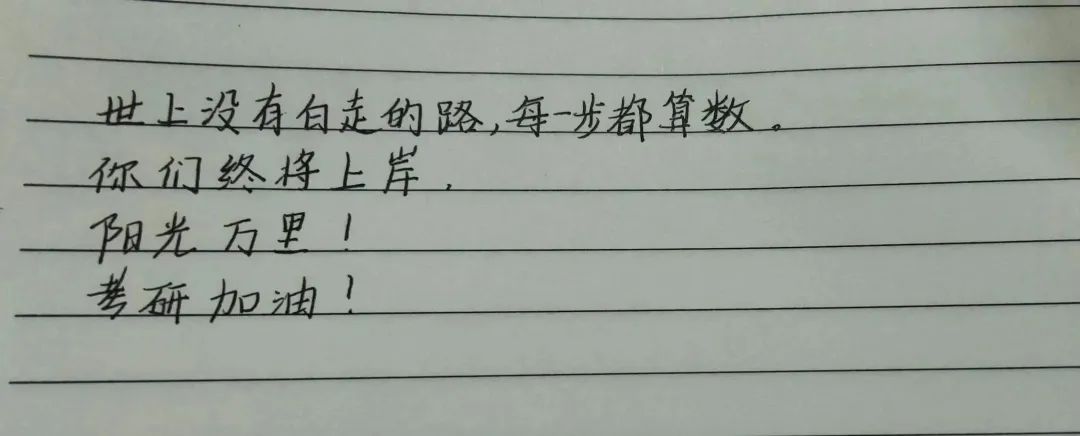 世上没有白走的路,每一步都算数。
你们终将上岸.
阳光万里!
考研加油!